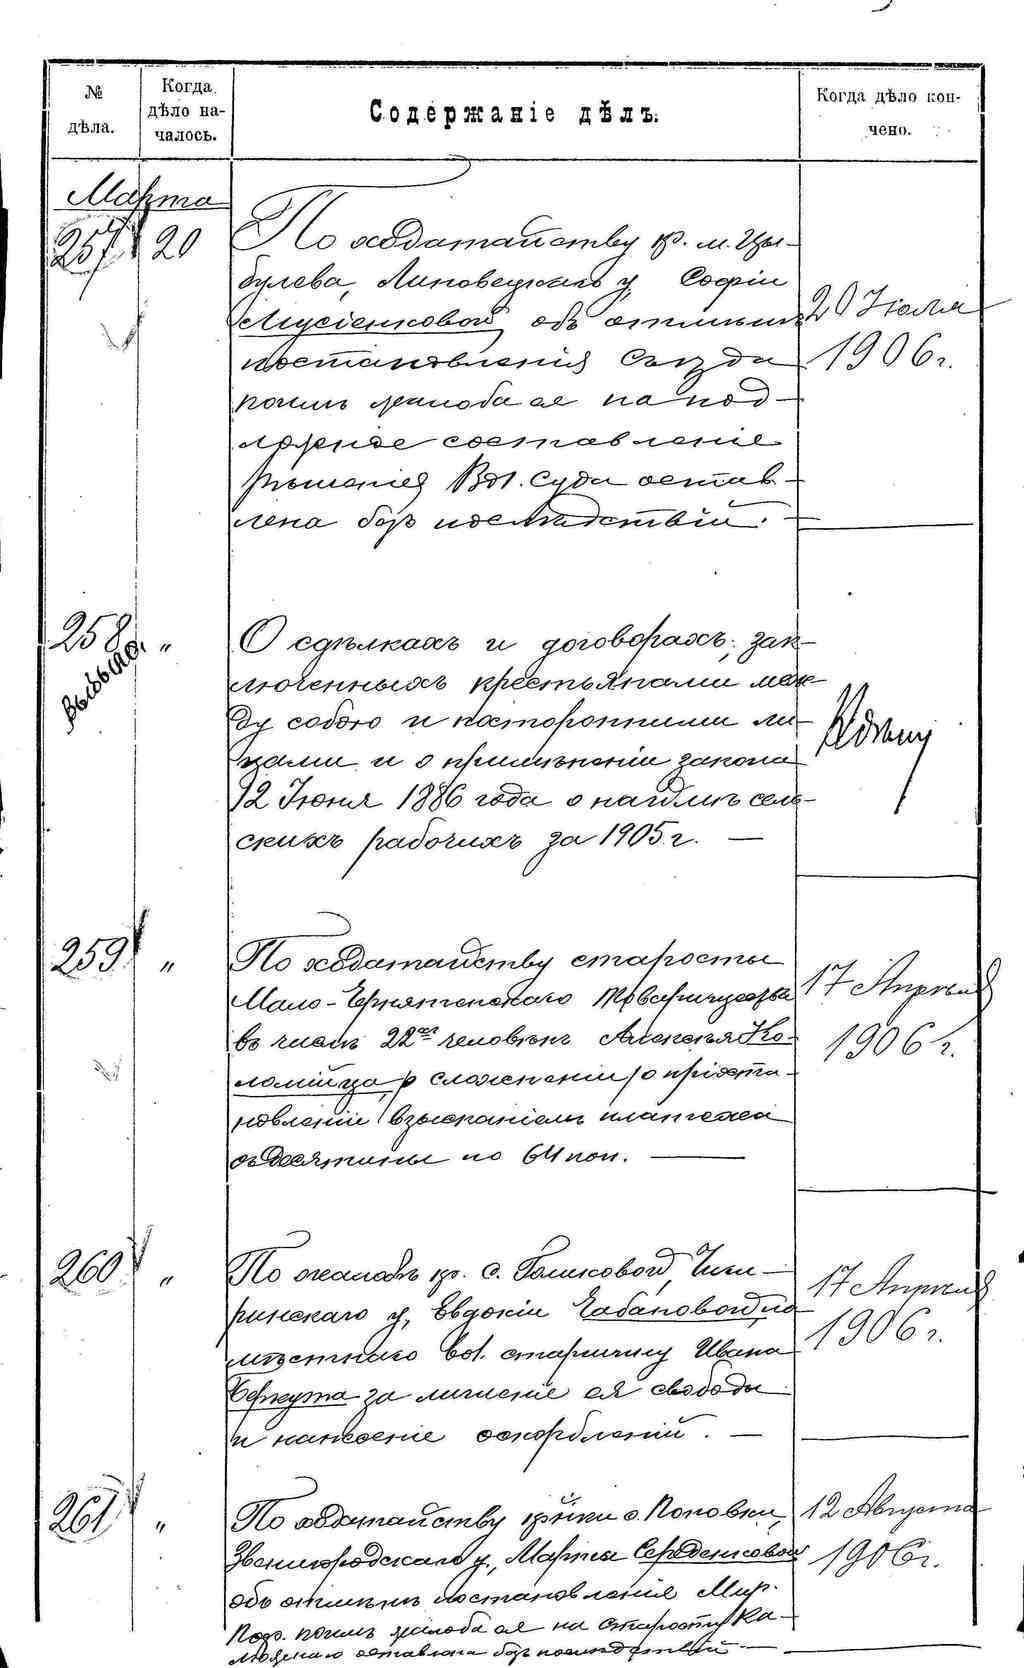 № дѣла.
Когда дѣло на-
чалось.
Содержаніе дѣлъ.
Когда дѣло кон-
чено.
Марта
257 20
По ходатайству кр. м. Цы-
булева, Липовецкаго у. Софіи
Мусіенковой объ отмѣнѣ
постановленія Съѣзда
коимъ жалоба ея на под-
ложное составленіе
рѣшенія Вол. Суда остав-
лена безъ послѣдствій. —
20 Іюля
1906 г.
258 "
выбыло.
О сдѣлкахъ и договорахъ, зак-
люченныхъ крестьянами меж-
ду собою и посторонними ли-
цами и о примѣненіи закона
12 Іюня 1886 года о наймѣ сель-
скихъ рабочихъ за 1905 г. —
259 "
По ходатайству старосты
Мало- товарищества
въ числѣ 22 человѣкъ Алексѣя Ко-
ломійца о сложеніи о пріоста-
новленіи взысканіемъ платежей
съ десятины по 64 коп. —
17 Апрѣля
1906 г.
260 "
По жалобѣ кр. с. Голиковой, Чиги-
ринскаго у. Евдокіи Чабановой на
мѣстнаго вол. старшину Ивана
Беркута за лишеніе ея свободы
и нанесеніе оскорбленій. —
17 Апрѣля
1906 г.
261 "
По ходатайству кр-нки с. Поповки,
Звенигородскаго у., Марты Середенковой
объ отмѣнѣ постановленія Мир.
Поср. коимъ жалоба ея на старосту Ка-
оставлена безъ послѣдствій —
12 Августа
1906 г.